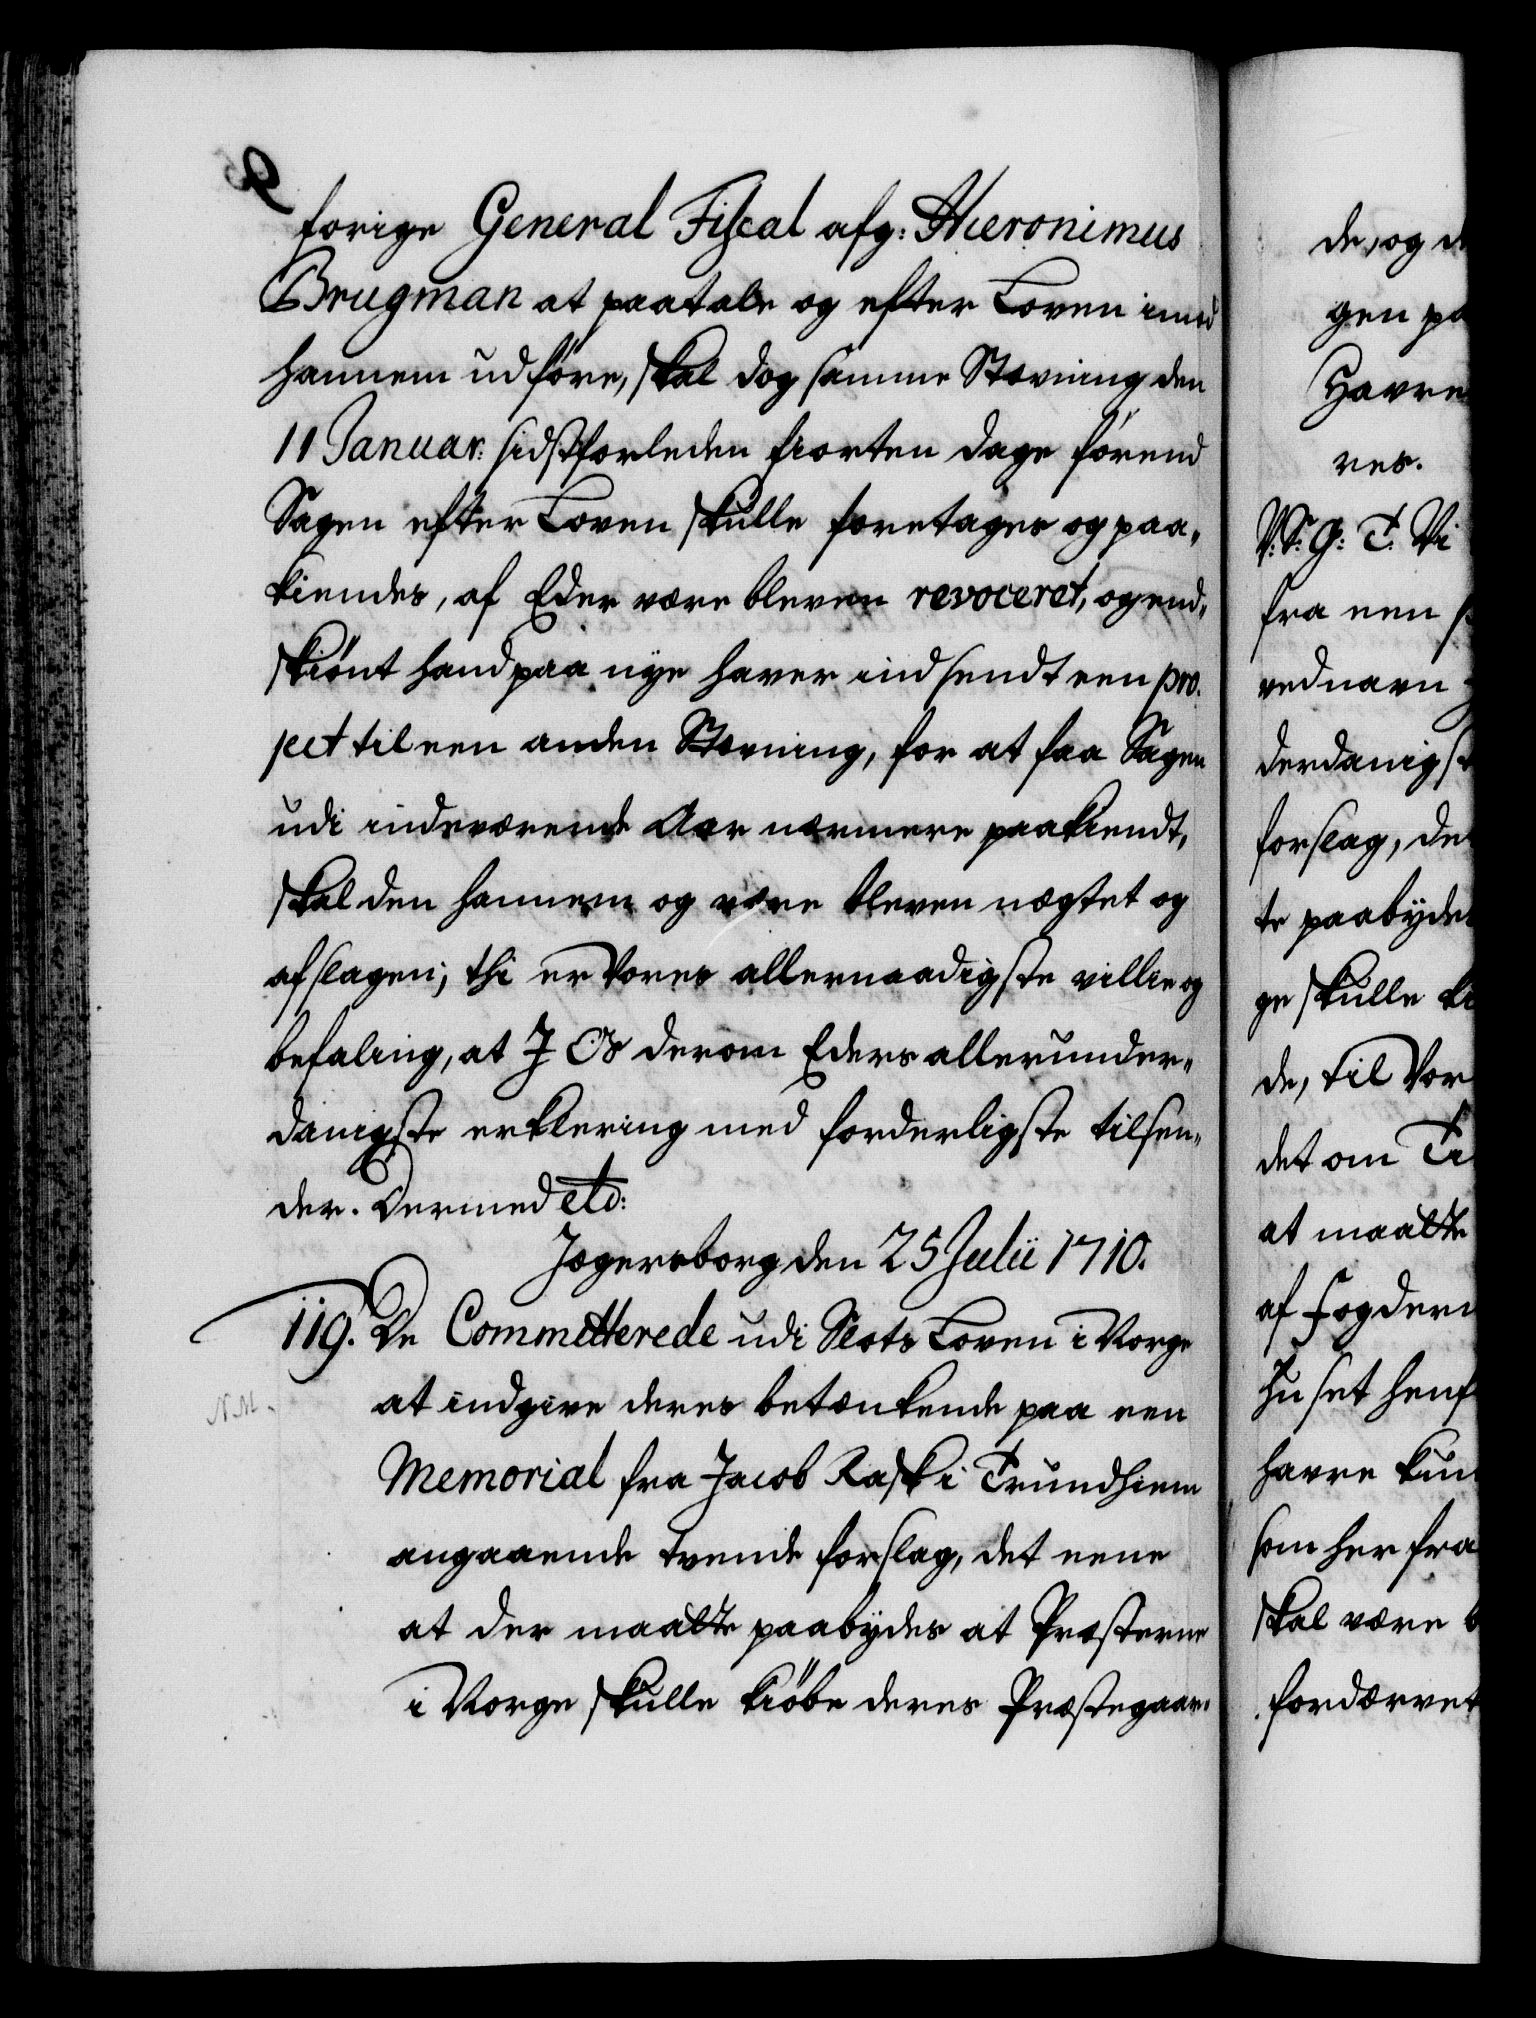 forige General Fiscal afg: Hieronimus
Brugman at paatale og efter Loven imod
hannem udføre, skal dog samme Stevning den
11 Januar: sidstforleden fiorten dage førend
Sagen efter Loven skulle foretages og paa,
kiendes, af Eder være bleven revoceret, og end,
skiønt hand paa nye haver indsendt een pro,
ject til een anden Stevning, for at faa Sagen
udi indeværende Aar nærmere paakiendt,
skal den hannem og være bleven nægtet og
afslagen; thi er Vores allernaadigste villie og
befaling, at I Os derom Eders allerunder,
danigste erklering med forderligste tilsen,
der. Dermed etc:
Jægersborg den 25 Julii 1710.
119. De Committerede udi Slots Loven i Norge
N.M.
at indgive deres betænkende paa een
Memorial fra Jacob Rask i Trundhiem
angaaende tvende forslag, det eene
at der maatte paabydes at Præsterne
i Norge skulle kiøbe deres Præstegaar,
de, og d
gen pa
Havre
res.
V. S. G: T. Vi
fra een
ved navn
derdanigst
forslag, de
te paabyde
ge skulle ki
de, til Vor
det om Ti
at maatte
af Fogderi
huset henf
havre kun
som her fra
skal være b
fordærvet